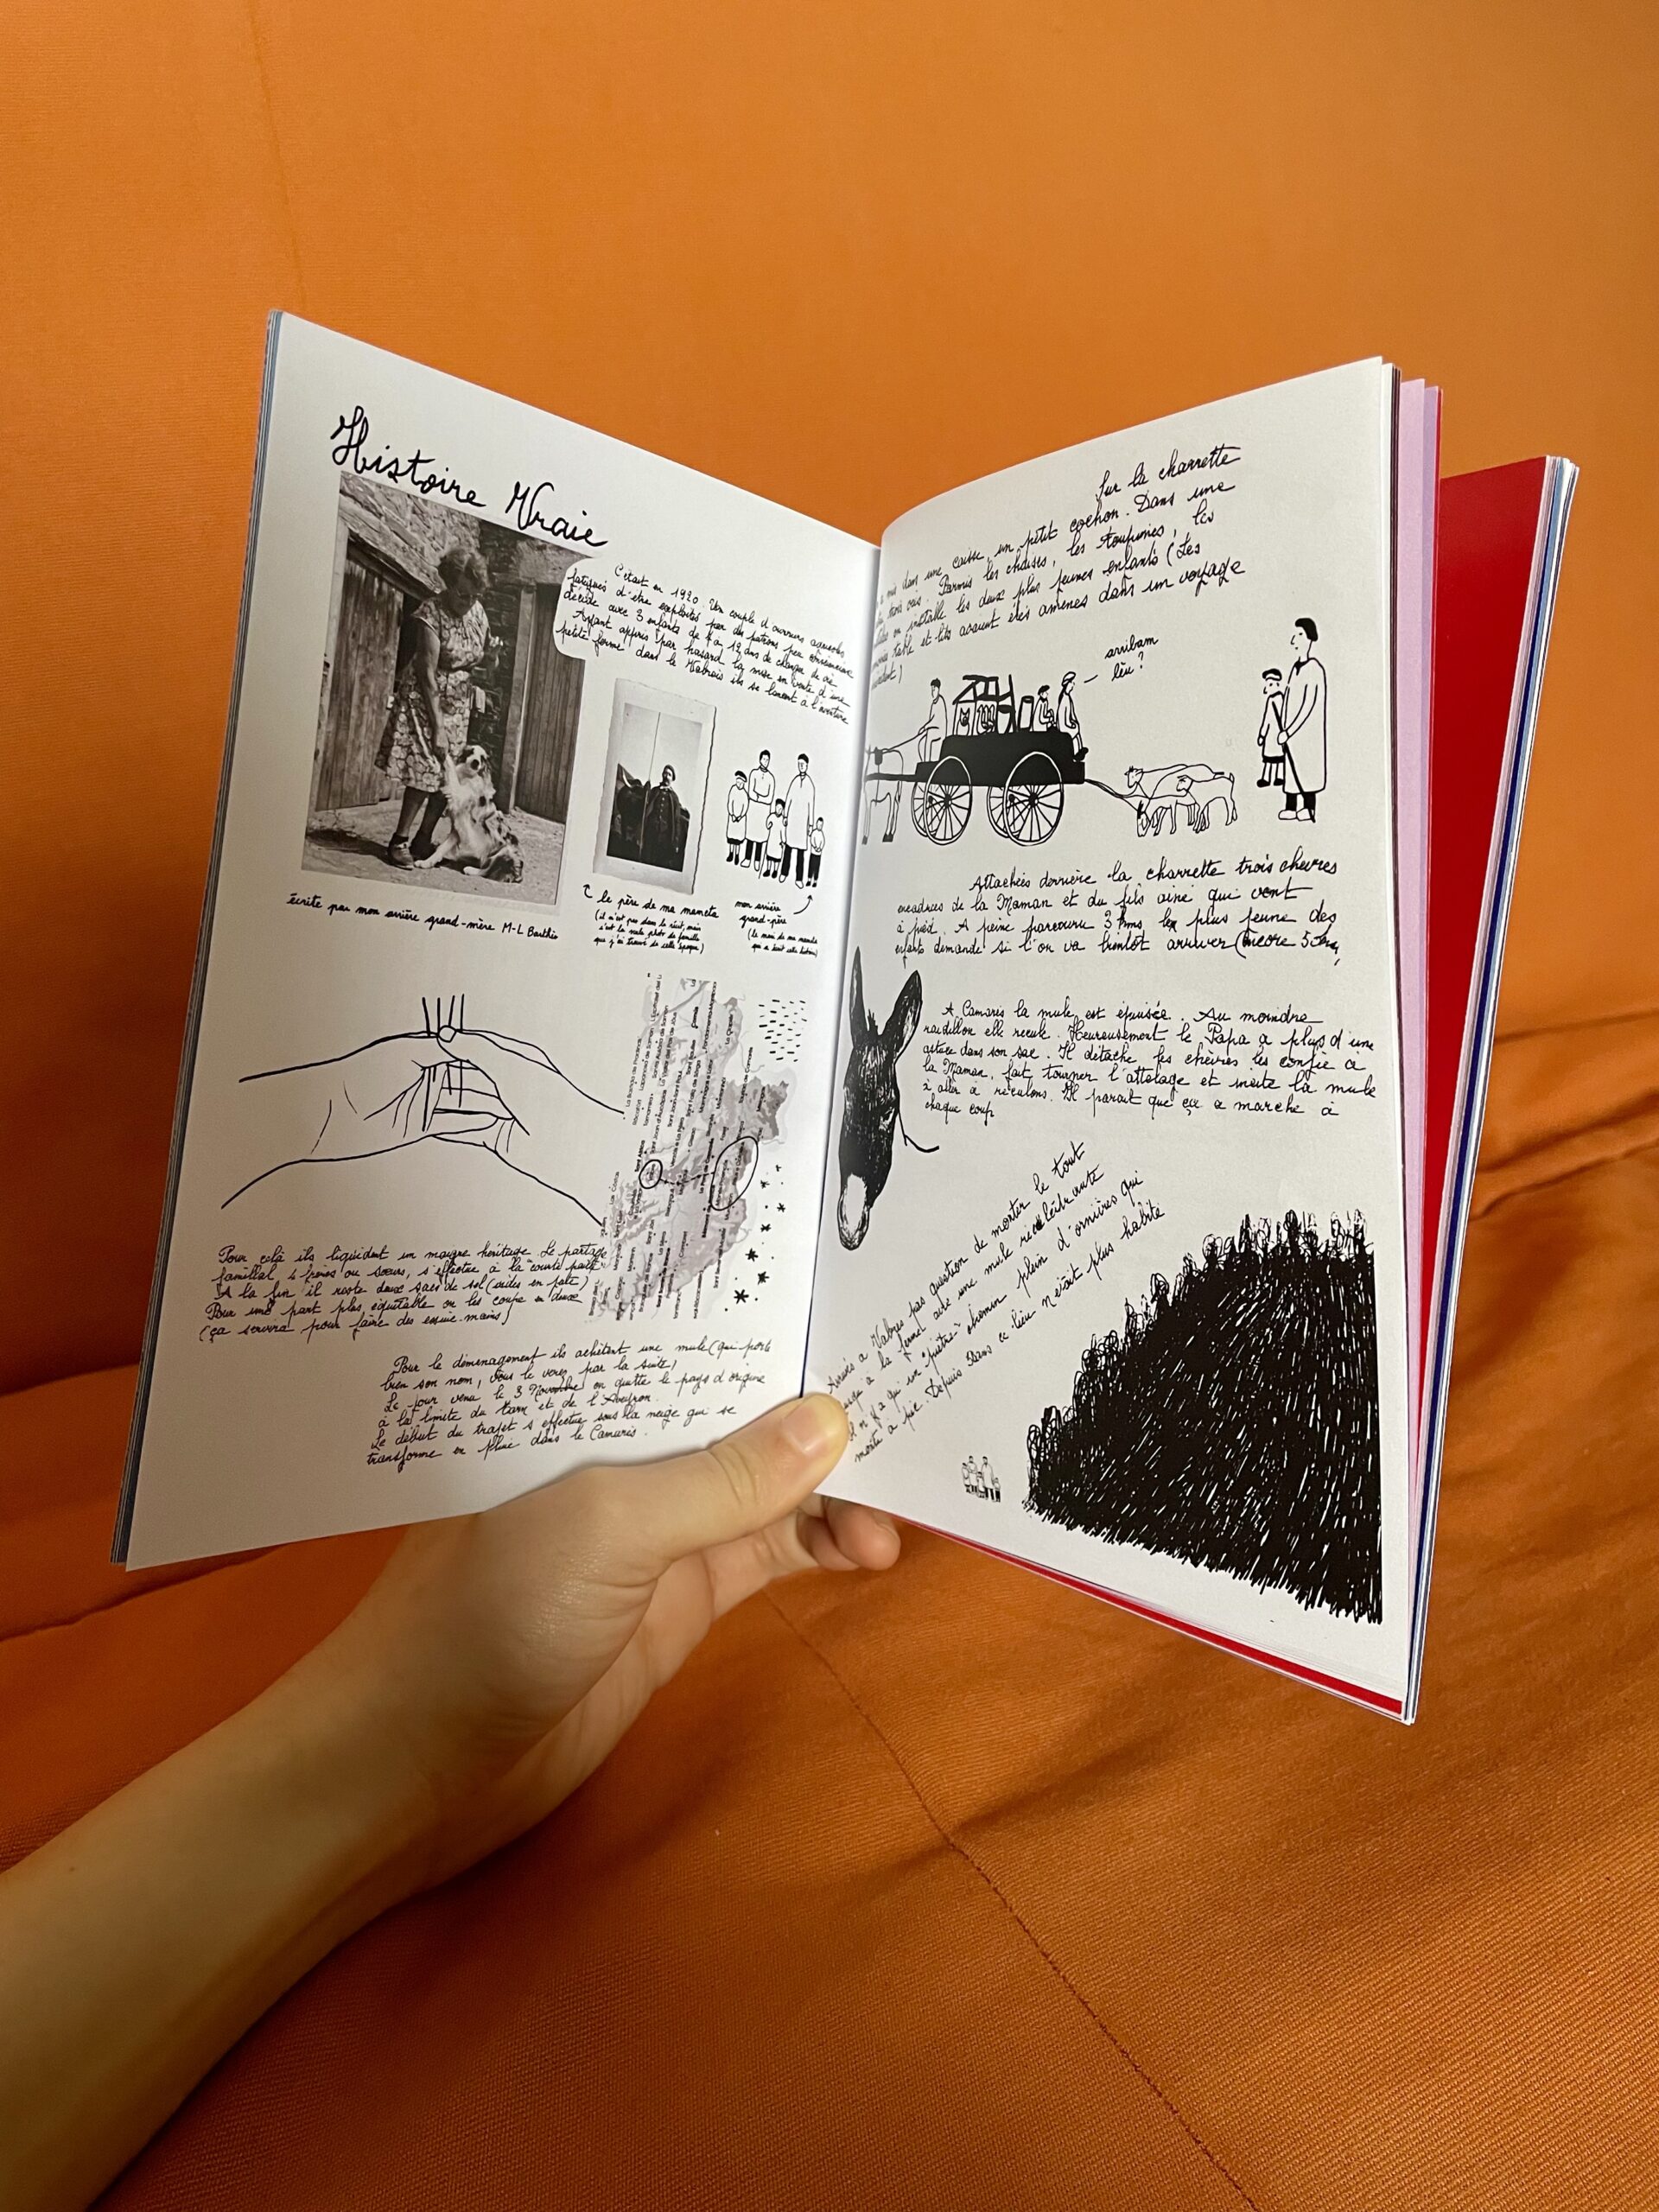 Histoire Vraie
C'était en 1920. Un couple d'ouvriers agricoles
fatigués d'être exploités par des patrons peu
décide avec 3 enfants de à 12 ans de changer de vie
Ayant appris par hasard la mise en vente d'une
petite ferme dans le Vabrais ils se lancent à l'aventure
écrite par mon arrière grand-mère M-L Barthe
le père de ma maneta
(il n'est pas dans le récit, mais
c'est la seule photo de famille
que j'ai trouvé de cette époque)
mon arrière
grand-père
(le mari de ma maneta
qui a écrit cette histoire)
Pour cela ils liquident un maigre héritage. Le partage
familial, 4 frères ou sœurs, s'effectue à la "courte paille"
A la fin il reste deux sacs de sel (vides en jute)
Pour une part plus équitable on les coupe en deux
(ça servira pour faire des essuie-mains)
Pour le déménagement ils achètent une mule (qui porte
bien son nom, vous le verez par la suite)
Le jour venu le 3 Novembre on quitte le pays d'origine
à la limite du Tarn et de l'Aveyron.
Le début du trajet s'effectue sous la neige qui se
transforme en pluie dans le Camarès.
Sur la charrette
mis dans une caisse, un petit cochon. Dans une
trois oies. Parmis les chaises, les toupines, les
on installe les deux plus jeunes enfants (Les
table et lits avaient étés amenés dans un voyage
arribam
lèu?
Attachées derrière la charrette trois chèvres
encadrées de la Maman et du fils ainé qui vont
à pied. A peine parcouru 3 kms le plus jeune des
enfants demande si l'on va bientôt arriver (encore 5
A Camarès la mule est épuisée. Au moindre
raidillon elle recule. Heureusement le Papa a plus d'une
astuce dans son sac. Il détache les chèvres les confie à
la Maman, fait tourner l'attelage et incite la mule
à aller à reculons. Il parait que ça a marché à
chaque coup
Arrivés a Vabres pas question de monter le tout
jusqu'à la ferme avec une mule recalcitrante
il n'y a qu'un "piètre" chemin plein d'ornières qui
monte à pic. Depuis ans ce lieu n'était plus habité